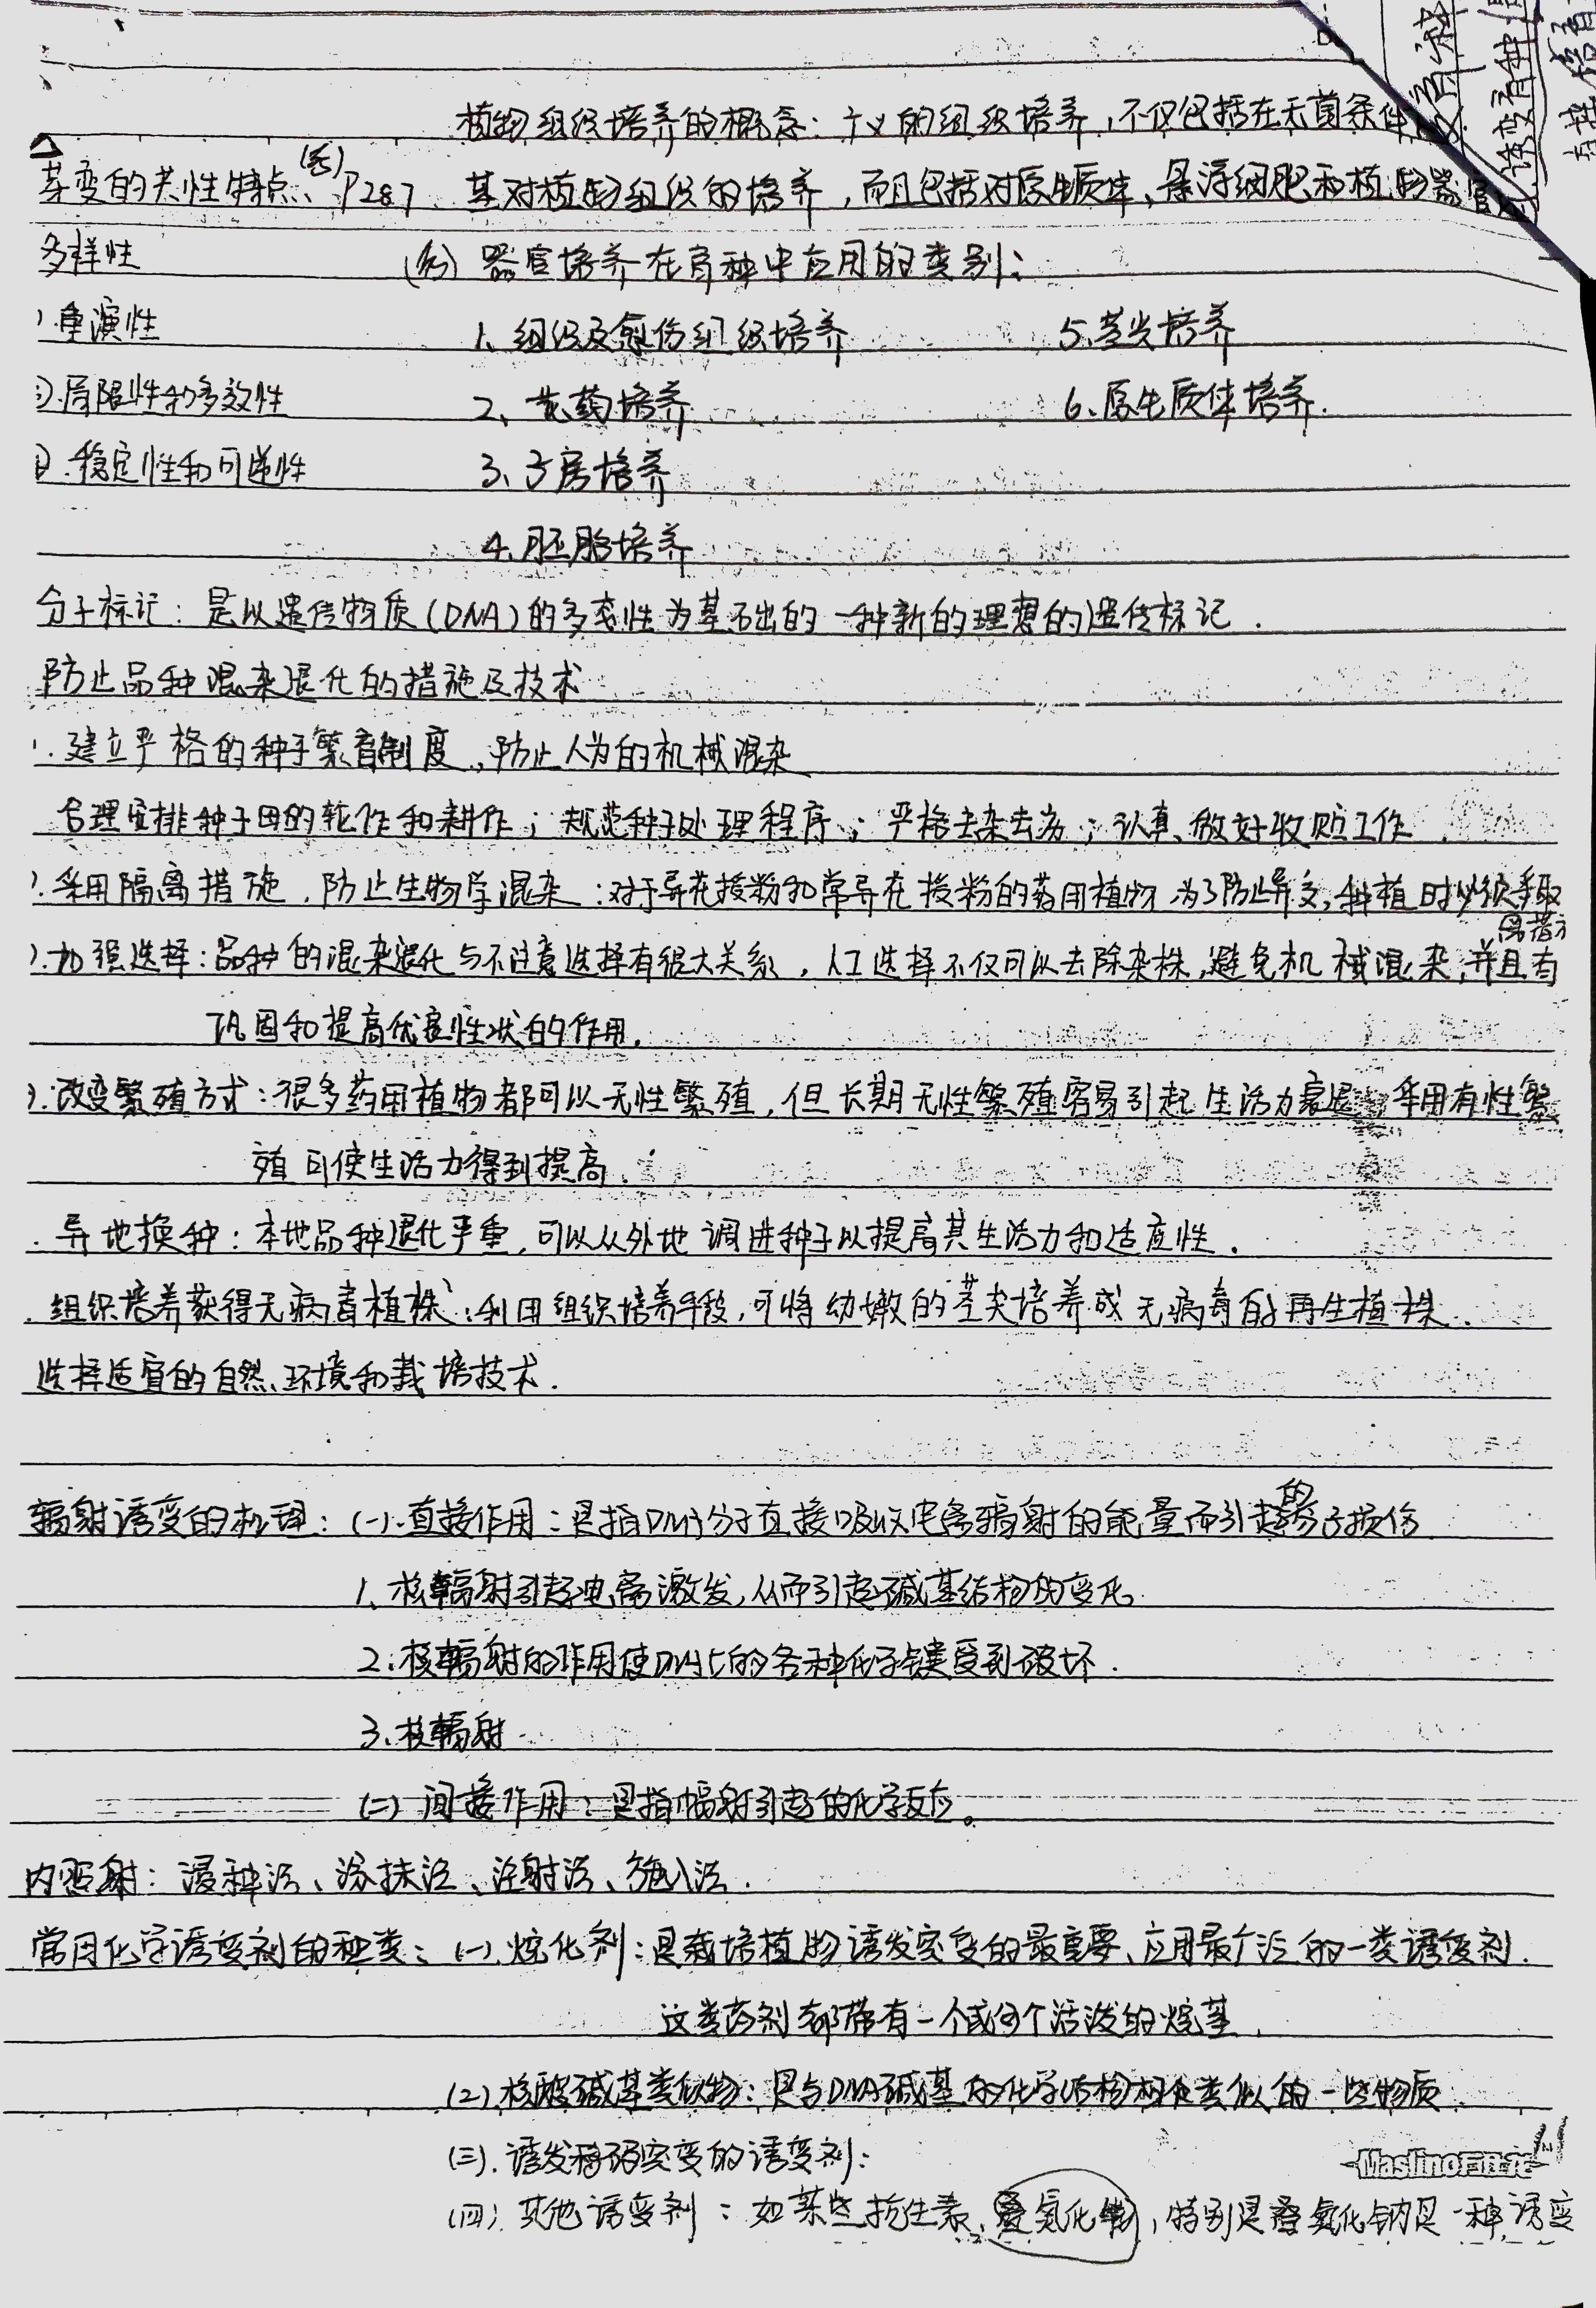 植物组织培养的概念：广义的组织培养，不仅包括在无菌条件
芽变的共性特点、P287
基对植物组织的培养，而且包括对原生质体、悬浮细胞和植物器官
多样性
器官培养在育种中应用的类别：
重演性
1、组织及愈伤组织培养
5、茎尖培养
局限性和多效性
2、花药培养
6、原生质体培养.
稳定性和可逆性
3、子房培养
4、胚胎培养
分子标记：是以遗传物质(DNA)的多态性为基础的一种新的理想的遗传标记.
防止品种混杂退化的措施及技术
建立严格的种子繁育制度，防止人为的机械混杂
合理安排种子田的轮作和耕作；规范种子处理程序；严格去杂去劣；认真做好收贮工作
采用隔离措施，防止生物学混杂：对于异花授粉和常异花授粉的药用植物为了防止异交，种植时必须采取
离措
加强选择：品种的混杂退化与不注意选择有很大关系，人工选择不仅可以去除杂株，避免机械混杂，并且有
巩固和提高优良性状的作用.
改变繁殖方式：很多药用植物都可以无性繁殖，但长期无性繁殖容易引起生活力衰退 采用有性繁
殖可使生活力得到提高.
异地换种：本地品种退化严重，可以从外地调进种子以提高其生活力和适应性.
组织培养获得无病毒植株：利用组织培养手段，可将幼嫩的茎尖培养成无病毒的再生植株.
选择适宜的自然环境和栽培技术.
辐射诱变的机理：(一).直接作用：是指DNA分子直接吸收电离辐射的能量而引起的分子损伤
1、核辐射引起电离激发，从而引起碱基结构的变化
2、核辐射的作用使DNA上的各种化学键受到破坏.
3、核辐射
(二) 间接作用：是指辐射引起的化学反应。
内照射：浸种法、涂抹法、注射法、施入法.
常用化学诱变剂的种类：(一).烷化剂：是栽培植物诱发突变的最重要、应用最广泛的一类诱变剂.
这类药剂都带有一个或多个活泼的烷基.
(2)核酸碱基类似物：是与DNA碱基的化学结构相类似的一些物质
(三).诱发移码突变的诱变剂：
(四).其他诱变剂：如某些抗生素、叠氮化物，特别是叠氮化钠是一种诱变
Maslino
诱变育种